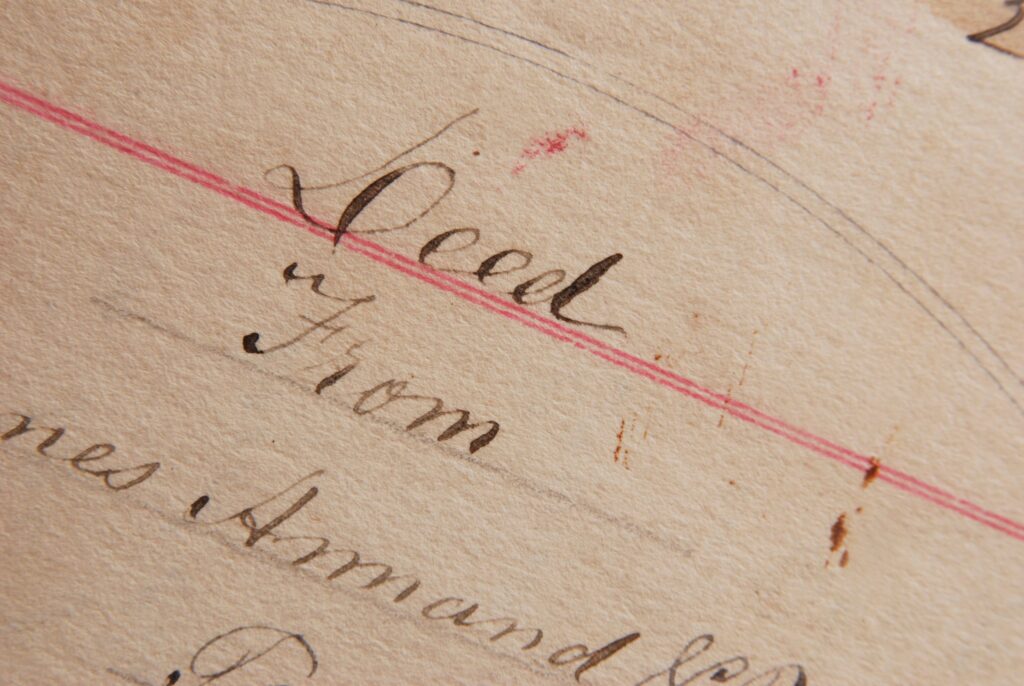 Deed
From
nes Armand &